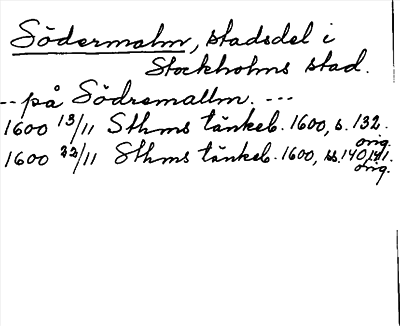 Södermalm, stadsdel i
Stockholms stad.
-- på Södremallm. ---
1600 13/11 Sthms tänkeb. 1600, s. 132.
orig.
1600 22/11 Sthms tänkeb. 1600, ss. 140, 141.
orig.